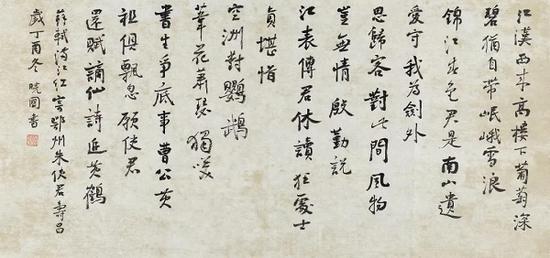 江漢西來高樓下葡萄深
碧猶自帶岷峨雪浪
錦江春色君是南山遺
愛守我為劍外
思歸客對此間風物
豈無情殷勤說
江表傳君休讀狂處士
真堪惜
空洲對鸚鵡
葦花蕭瑟獨笑
書生爭底事曹公黃
祖俱飄忽願使君
還賦謫仙詩追黃鶴
蘇軾滿江紅寄鄂州朱使君壽昌
歲丁酉冬 曉國書